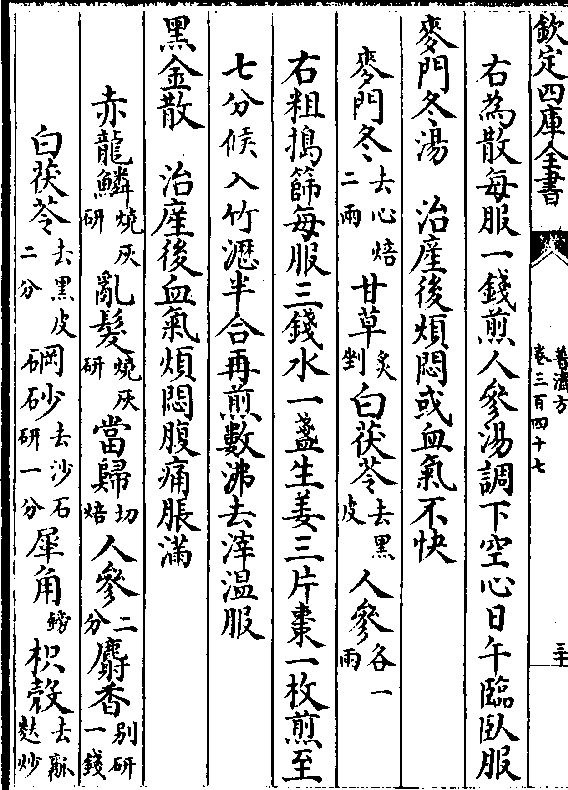 欽定四庫全書
普濟方
卷三百四十七
三十
右為散每服一錢煎人參湯調下空心日午臨臥服
麥門冬湯　治產後煩悶或血氣不快
麥門冬去心焙二兩　甘草炙剉　白茯苓去黑皮　人參各一兩
右粗搗篩每服三錢水一盞生姜三片棗一枚煎至
七分候入竹瀝半合再煎數沸去滓温服
黑金散　治產後血氣煩悶腹痛脹滿
赤龍鱗燒灰研　亂髮燒灰研　當歸切焙　人參二分　麝香別研一錢
白茯苓去黑皮二分　硇砂去沙石研一分　犀角鎊　枳殼去瓤麩炒